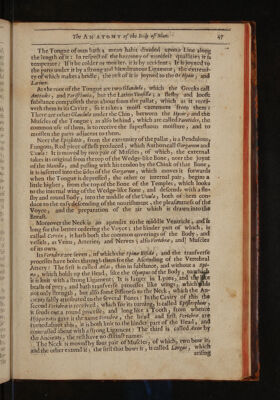 The ANATOMY of the Body of Man. 47
The Tongue of man hath a mean habit divided upon a Line along
the length of it: In respect of the harmony of manifest qualities it is
temperate: If it be colder or moister, it is by accident: It is joyned to
the parts under it by a strong and Membranous Ligament, the extremi-
ty of which makes a bridle; the rest of it is joyned to the Os Hyois, and
Larinx.
At the root of the Tongue are two Glandels, which the Greeks call
and Paristhmia, but the Latins Tonsillæ; a fleshy and loose
substance compasseth them about from the pallat, which as it cove-
reth them in its Cavity, so it takes a moist excrement from them:
There are other Glandels under the Chin, between the Hyois, and the
Muscles of the Tongue; as also behind, which are called Parotides, the
common use of them, is to receive the superfluous moisture, and to
moisten the parts adjacent to them.
Next the Epiglottis, from the extremity of the pallat, is a Pendulous,
Fungous, Red piece of flesh produced, which Authors call Gargareon and
Uvula: It is moved by two pair of Muscles, of which, the external
takes its original from the top of the Wedge-like Bone, over the Joynt
of the Mandible, and passing with his tendon by the Chink of that Bone,
it is inserted into the sides of the Gargareon, which moves it forwards
when the Tongue is depressed; the other or internal pair, begins a
little higher, from the top of the Bone of the Temples, which looks
to the internal wing of the Wedge-like Bone, and descends with a fle-
shy and round Body, into the middle of the Uvula, both of them con-
duce to the easie descending of the nourishment, the pleasantness of the
Voyce, and the preparation of the air which is drawn into the
Breast.
Moreover the Neck is an apendix to the middle Ventricle, and is
long for the better ordering the Voyce; the hinder part of which, is
called Cervix, it hath both the common coverings of the Body, and
vessels, as Veins, Arteries, and Nerves; also Vertebræ, and Muscles
of its own.
Its Vertebræ are seven, of which the Spinæ Bifidæ, and the transverse
processes have holes through them for the ascending of the Vertebral
Artery: The first is called Atlas, thin in substance, and without a Spi-
na, which holds up the Head, like the Olympus of the Body, to which
it is knit with a strong Ligament, It is larger in Lyons, and the like
beasts of prey, and hath transverse processes like wings; which adds
not only strength, but also some stiffeness to the Neck, which the An-
cients falsly attributed to the several Bones: In the Cavity of this the
second Vertebra is received, which for its turning, is called Epistrophæus;
it sends out a round process, and long like a Tooth, from whence
Hippocrates gave it the name Dentalis, the Head and first Vertebra are
turned about this, it is both knit to the hinder part of the Head, and
contained about with a strong Ligament: The third is called Axon by
the Ancients; the rest have no distinct names.
The Neck is moved by four pair of Muscles; of which, two bow it,
and the other extend it; the first that bows it, is called Longus, which
arising